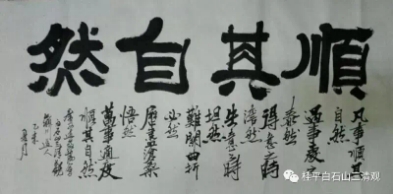 順其自然
凡事順其
自然
遇事處
泰然
得意時
淡然
失意時
坦然
曲折
必然
歷盡滄桑
悟然
萬事
順其自然
桂平白石山三清观